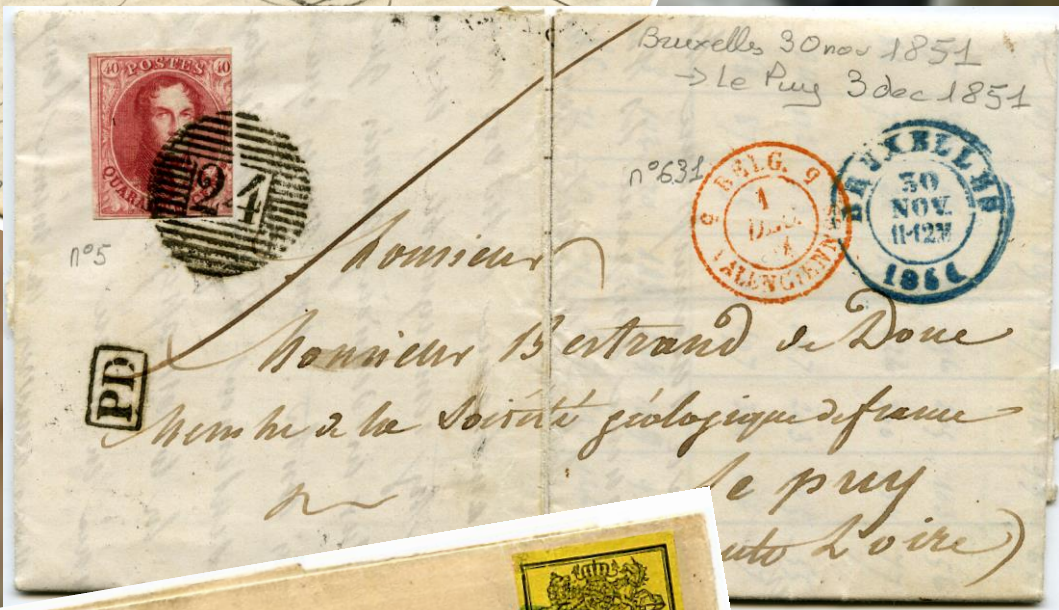 Bruxelles 30 nov 1851
→ Le Puy 3 dec 1851
40 POSTES 40
QUARA
24
n°5
n°631
BELG. 9
1
9
VALENCIENN
BRUXELLES
30
NOV.
11-12M
1851
PD
Monsieur
Monsieur Bertrand de Doue
Membre de la Société géologique de france
le puy
aute Loire)